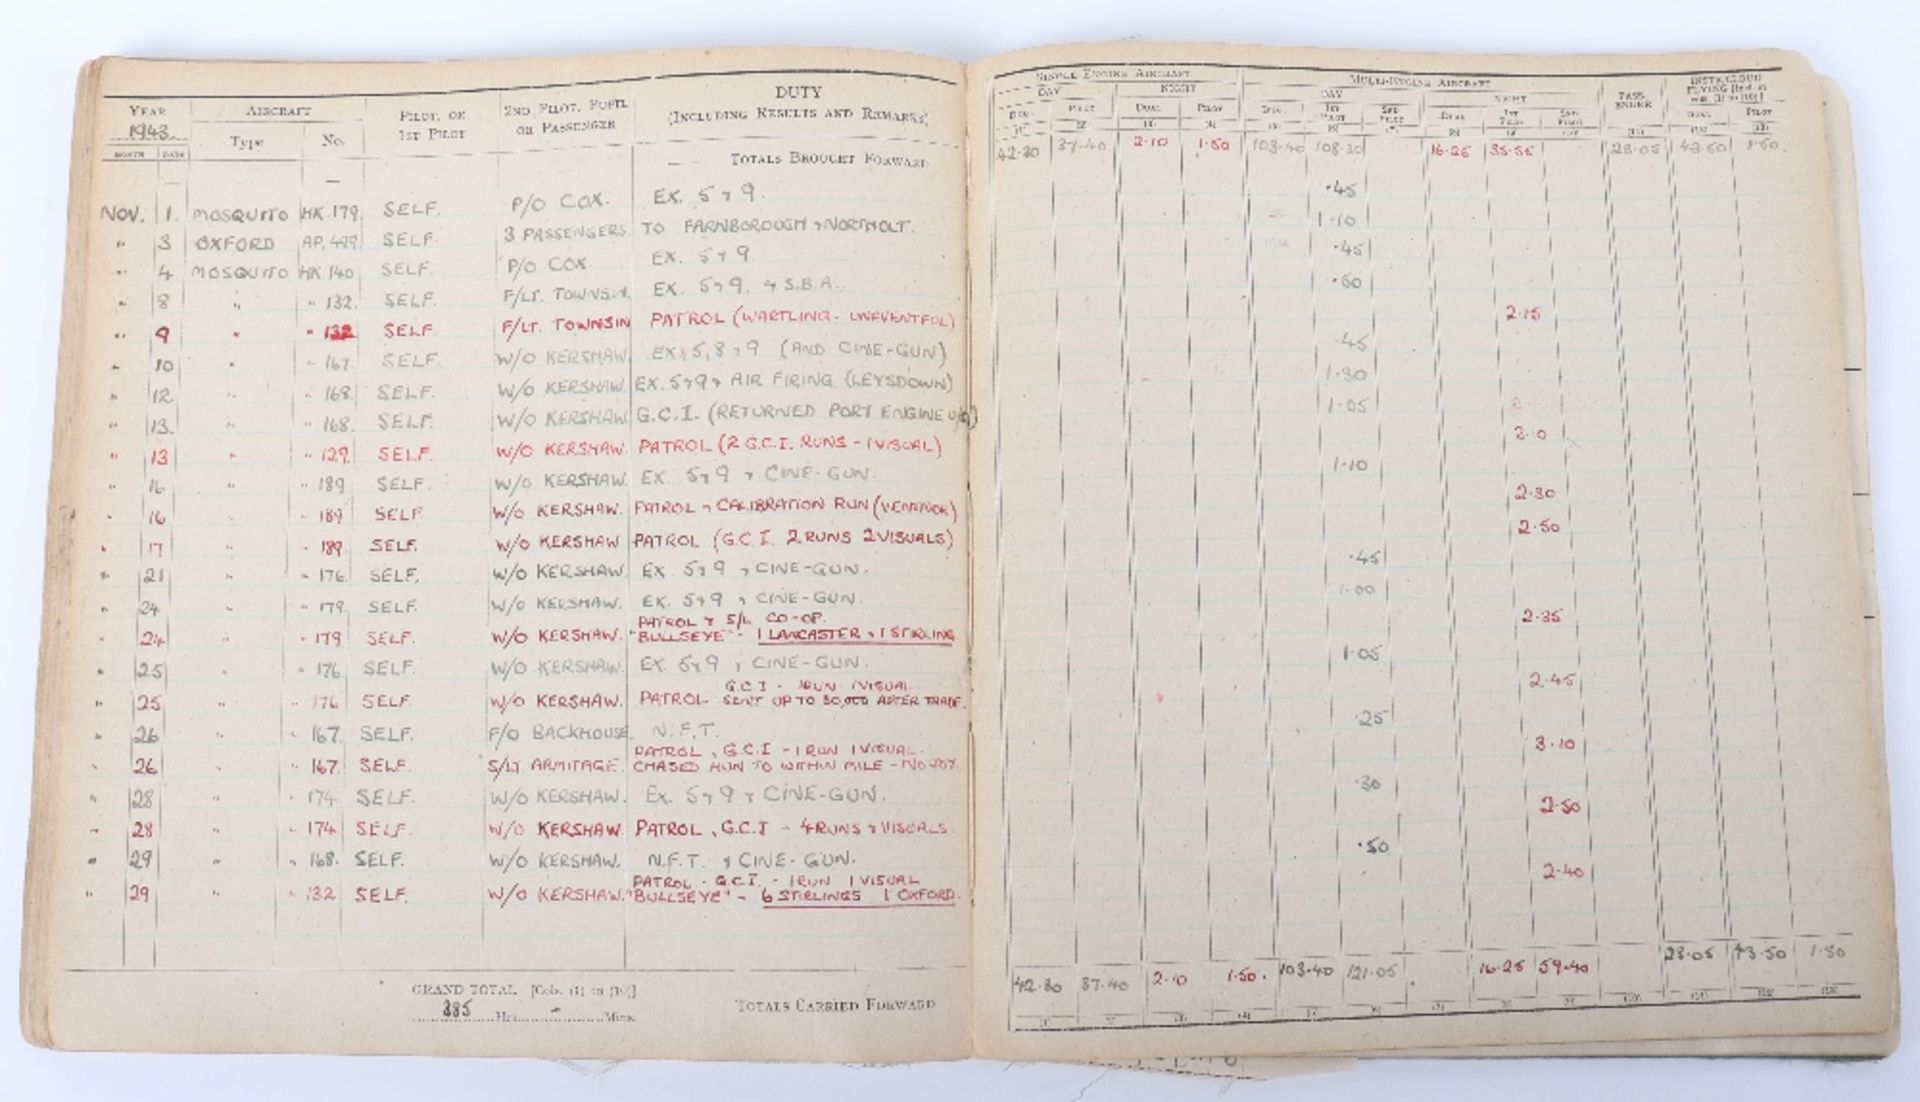 YEAR AIRCRAFT PILOT, OR 1ST PILOT 2ND PILOT, PUPIL OR PASSENGER DUTY (INCLUDING RESULTS AND REMARKS)
1943. Type No.
MONTH DATE
TOTALS BROUGHT FORWARD
NOV. 1. MOSQUITO HK.179. SELF. P/O COX. EX. 5 & 9.
" 3 OXFORD AP.499 SELF. 3 PASSENGERS. TO FARNBOROUGH & NORTHOLT.
" 4 MOSQUITO HK.140 SELF. P/O COX. EX. 5 & 9.
" 8 " " 132. SELF. F/LT. TOWNSIN. EX. 5 & 9. & S.B.A.
" 9 " " 132 SELF. F/LT. TOWNSIN PATROL (WARTLING - UNEVENTFUL)
" 10 " " 167. SELF. W/O KERSHAW. EX. 5, 8 & 9 (AND CINE-GUN)
" 12 " " 168. SELF. W/O KERSHAW. EX. 5 & 9 & AIR FIRING (LEYSDOWN)
" 13. " " 168. SELF. W/O KERSHAW. G.C.I. (RETURNED PORT ENGINE U/S)
" 13 " " 129. SELF. W/O KERSHAW. PATROL (2 G.C.I. RUNS - 1 VISUAL)
" 16 " " 189 SELF. W/O KERSHAW. EX. 5 & 9 & CINE-GUN.
" 16 " " 189 SELF. W/O KERSHAW. PATROL & CALIBRATION RUN (VENTNOR)
" 17 " " 189. SELF. W/O KERSHAW PATROL (G.C.I. 2 RUNS 2 VISUALS)
" 21 " " 176. SELF. W/O KERSHAW. EX. 5 & 9 & CINE-GUN.
" 24 " " 179. SELF. W/O KERSHAW. EX. 5 & 9 & CINE-GUN.
PATROL & S/L CO-OP.
" 24 " " 179 SELF. W/O KERSHAW. "BULLSEYE" - 1 LANCASTER & 1 STIRLING.
" 25 " " 176. SELF. W/O KERSHAW. EX. 5 & 9 & CINE-GUN.
G.C.I - 1 RUN 1 VISUAL.
" 25 " " 176 SELF. W/O KERSHAW. PATROL - SENT UP TO 30,000 AFTER TRADE.
" 26 " " 167. SELF. F/O BACKHOUSE. N.F.T.
PATROL, G.C.I - 1 RUN 1 VISUAL.
" 26 " " 167. SELF. S/LT ARMITAGE. CHASED HUN TO WITHIN MILE - NO JOY.
" 28 " " 174 SELF. W/O KERSHAW. EX. 5 & 9 & CINE-GUN.
" 28 " " 174. SELF. W/O KERSHAW. PATROL, G.C.I - 4 RUNS & VISUALS.
" 29 " " 168. SELF. W/O KERSHAW. N.F.T. & CINE-GUN.
PATROL - G.C.I. - 1 RUN 1 VISUAL
" 29 " " 132 SELF. W/O KERSHAW. "BULLSEYE" - 6 STIRLINGS 1 OXFORD.
GRAND TOTAL [Cols. (1) to (10)]
385 Hrs. - Mins. TOTALS CARRIED FORWARD
SINGLE-ENGINE AIRCRAFT MULTI-ENGINE AIRCRAFT PASSENGER INSTR/CLOUD FLYING [Incl. in cols. (1) to (10)]
DAY NIGHT DAY NIGHT
DUAL PILOT DUAL PILOT DUAL 1ST PILOT 2ND PILOT DUAL 1ST PILOT 2ND PILOT DUAL PILOT
(1) (2) (3) (4) (5) (6) (7) (8) (9) (10) (11) (12) (13)
42.30 37.40 2.10 1.50 103.40 108.30 16.25 35.55 23.05 43.50 1.50.
.45
1.10
.45
.50
2.15
.45
1.30
1.05
2.10
1.10
2.30
2.50
.45
1.00
2.35
1.05
2.45
.25
3.10
.30
2.50
.50
2.40
42.30 37.40 2.10 1.50. 103.40 121.05 16.25 59.40 23.05 43.50 1.50